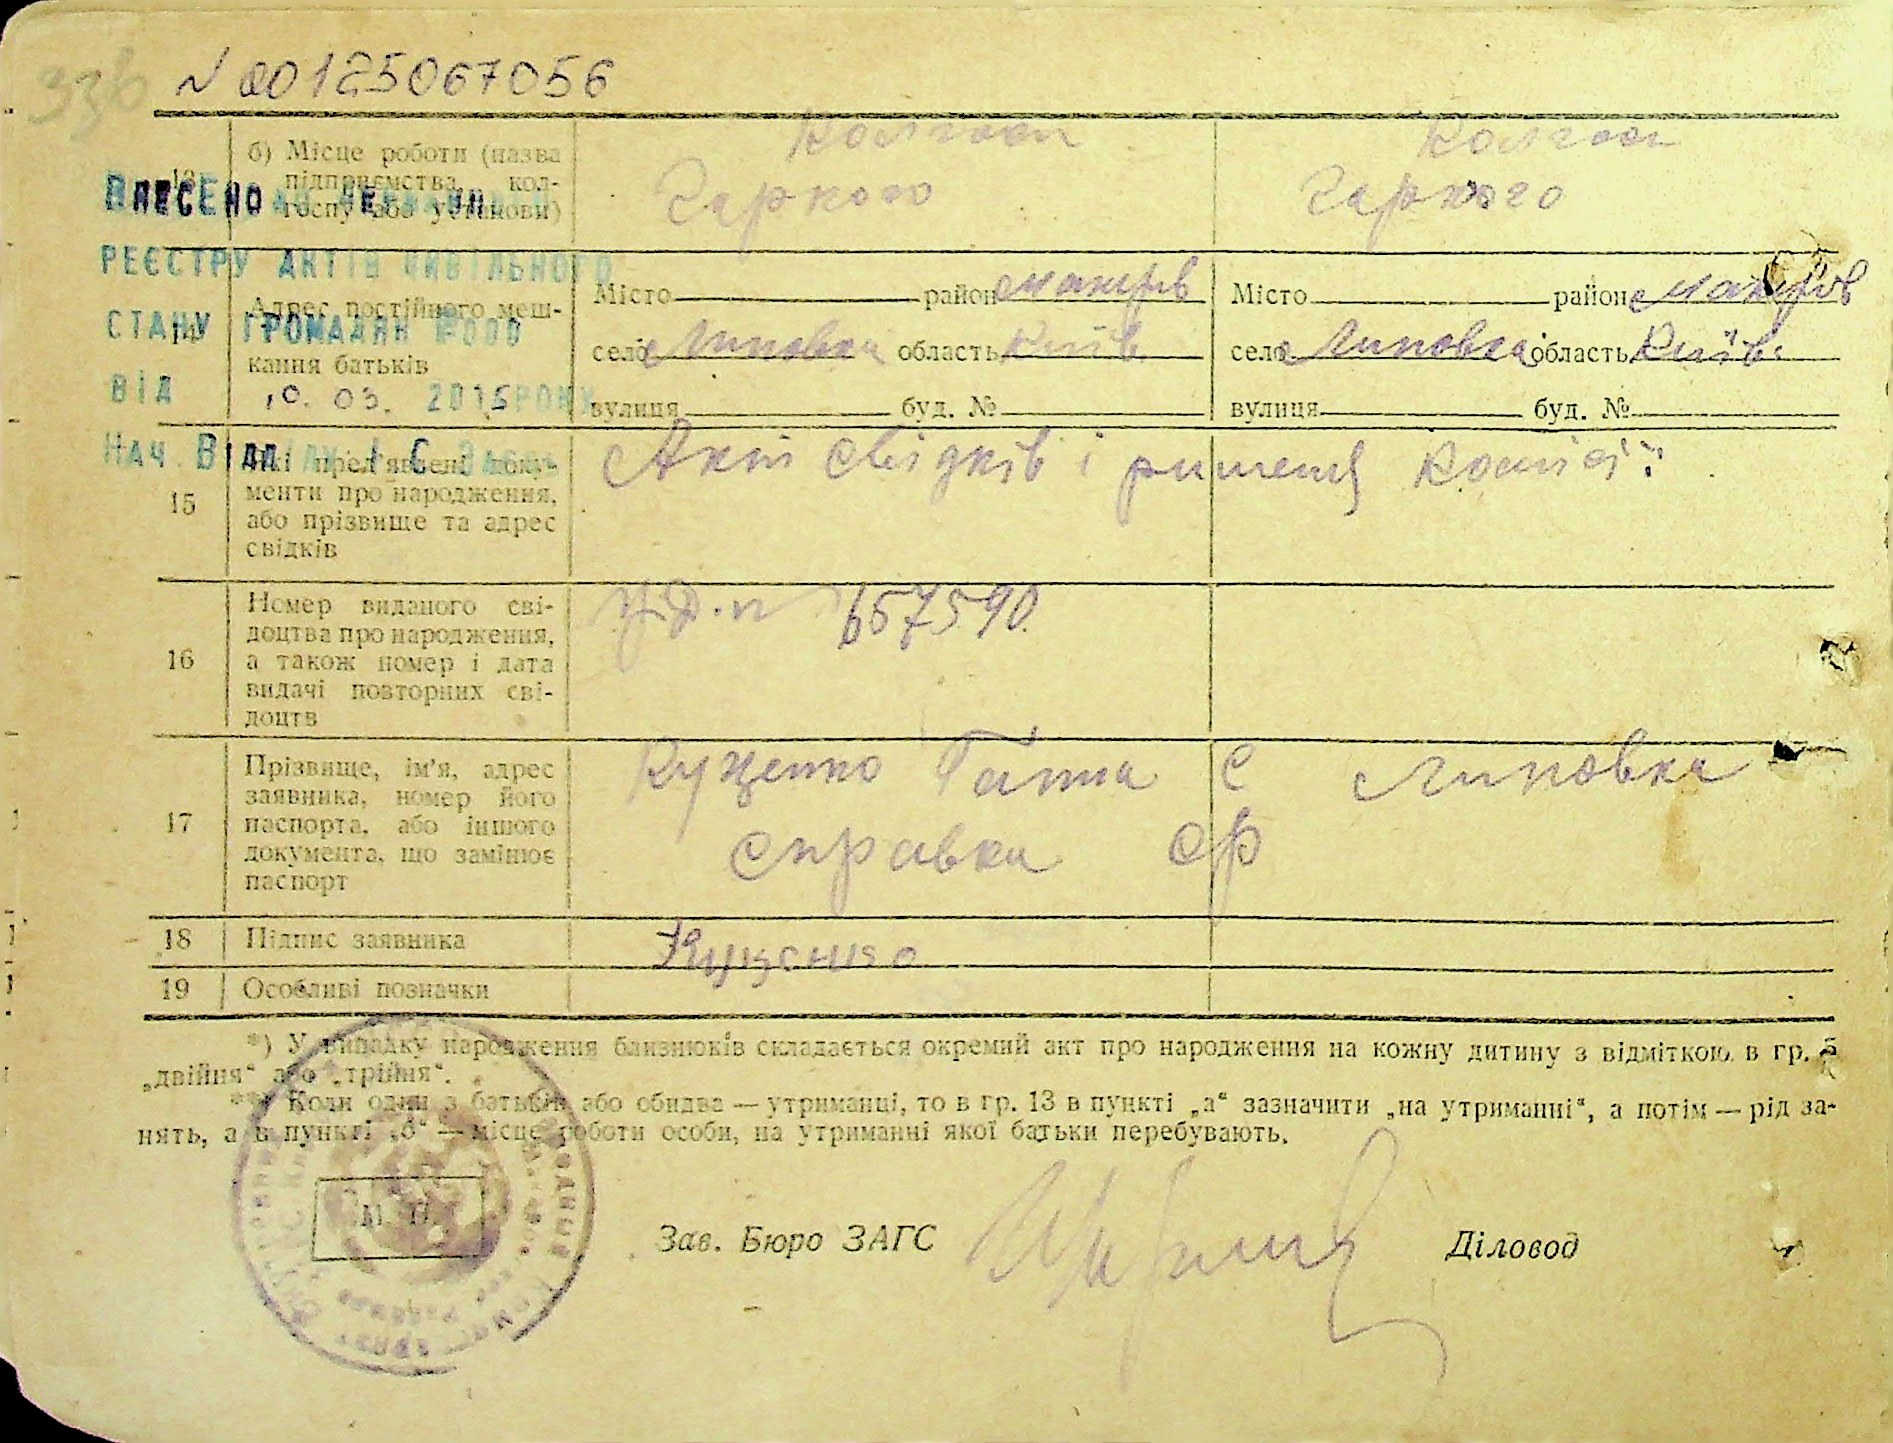 33б
N 00125067056
13
б) Місце роботи (назва підприємства, колгоспу або установи)
колгосп
Горкого
колгосп
Горкого
ВНЕСЕНО ДО ДЕРЖАВНОГО
РЕЄСТРУ АКТІВ ЦИВІЛЬНОГО
СТАНУ ГРОМАДЯН
ВІД 10.03. 2015 РОКУ
НАЧ. ВІДДІЛУ
14
Адрес постійного мешкання батьків
Місто район Макарів
село Липовка область Київ.
вулиця буд. №
Місто район Макарів
село Липовка область Київ.
вулиця буд. №
15
Які пред'явлені документи про народження, або прізвище та адрес свідків
Акт свідків і ришення комісії
16
Номер виданого свідоцтва про народження, а також номер і дата видачі повторних свідоцтв
657590
17
Прізвище, ім'я, адрес заявника, номер його паспорта, або іншого документа, що замінює паспорт
Куценко Ганна с Липовка
справка ср
18
Підпис заявника
Куценко
19
Особливі позначки
*) У випадку народження близнюків складається окремий акт про народження на кожну дитину з відміткою в гр. 5
„двійня“ або „трійня“.
**) Коли один з батьків або обидва — утриманці, то в гр. 13 в пункті „а“ зазначити „на утриманні“, а потім — рід за-
нять, а в пункті „б“ — місце роботи особи, на утриманні якої батьки перебувають.
М. П.
Зав. Бюро ЗАГС
Діловод